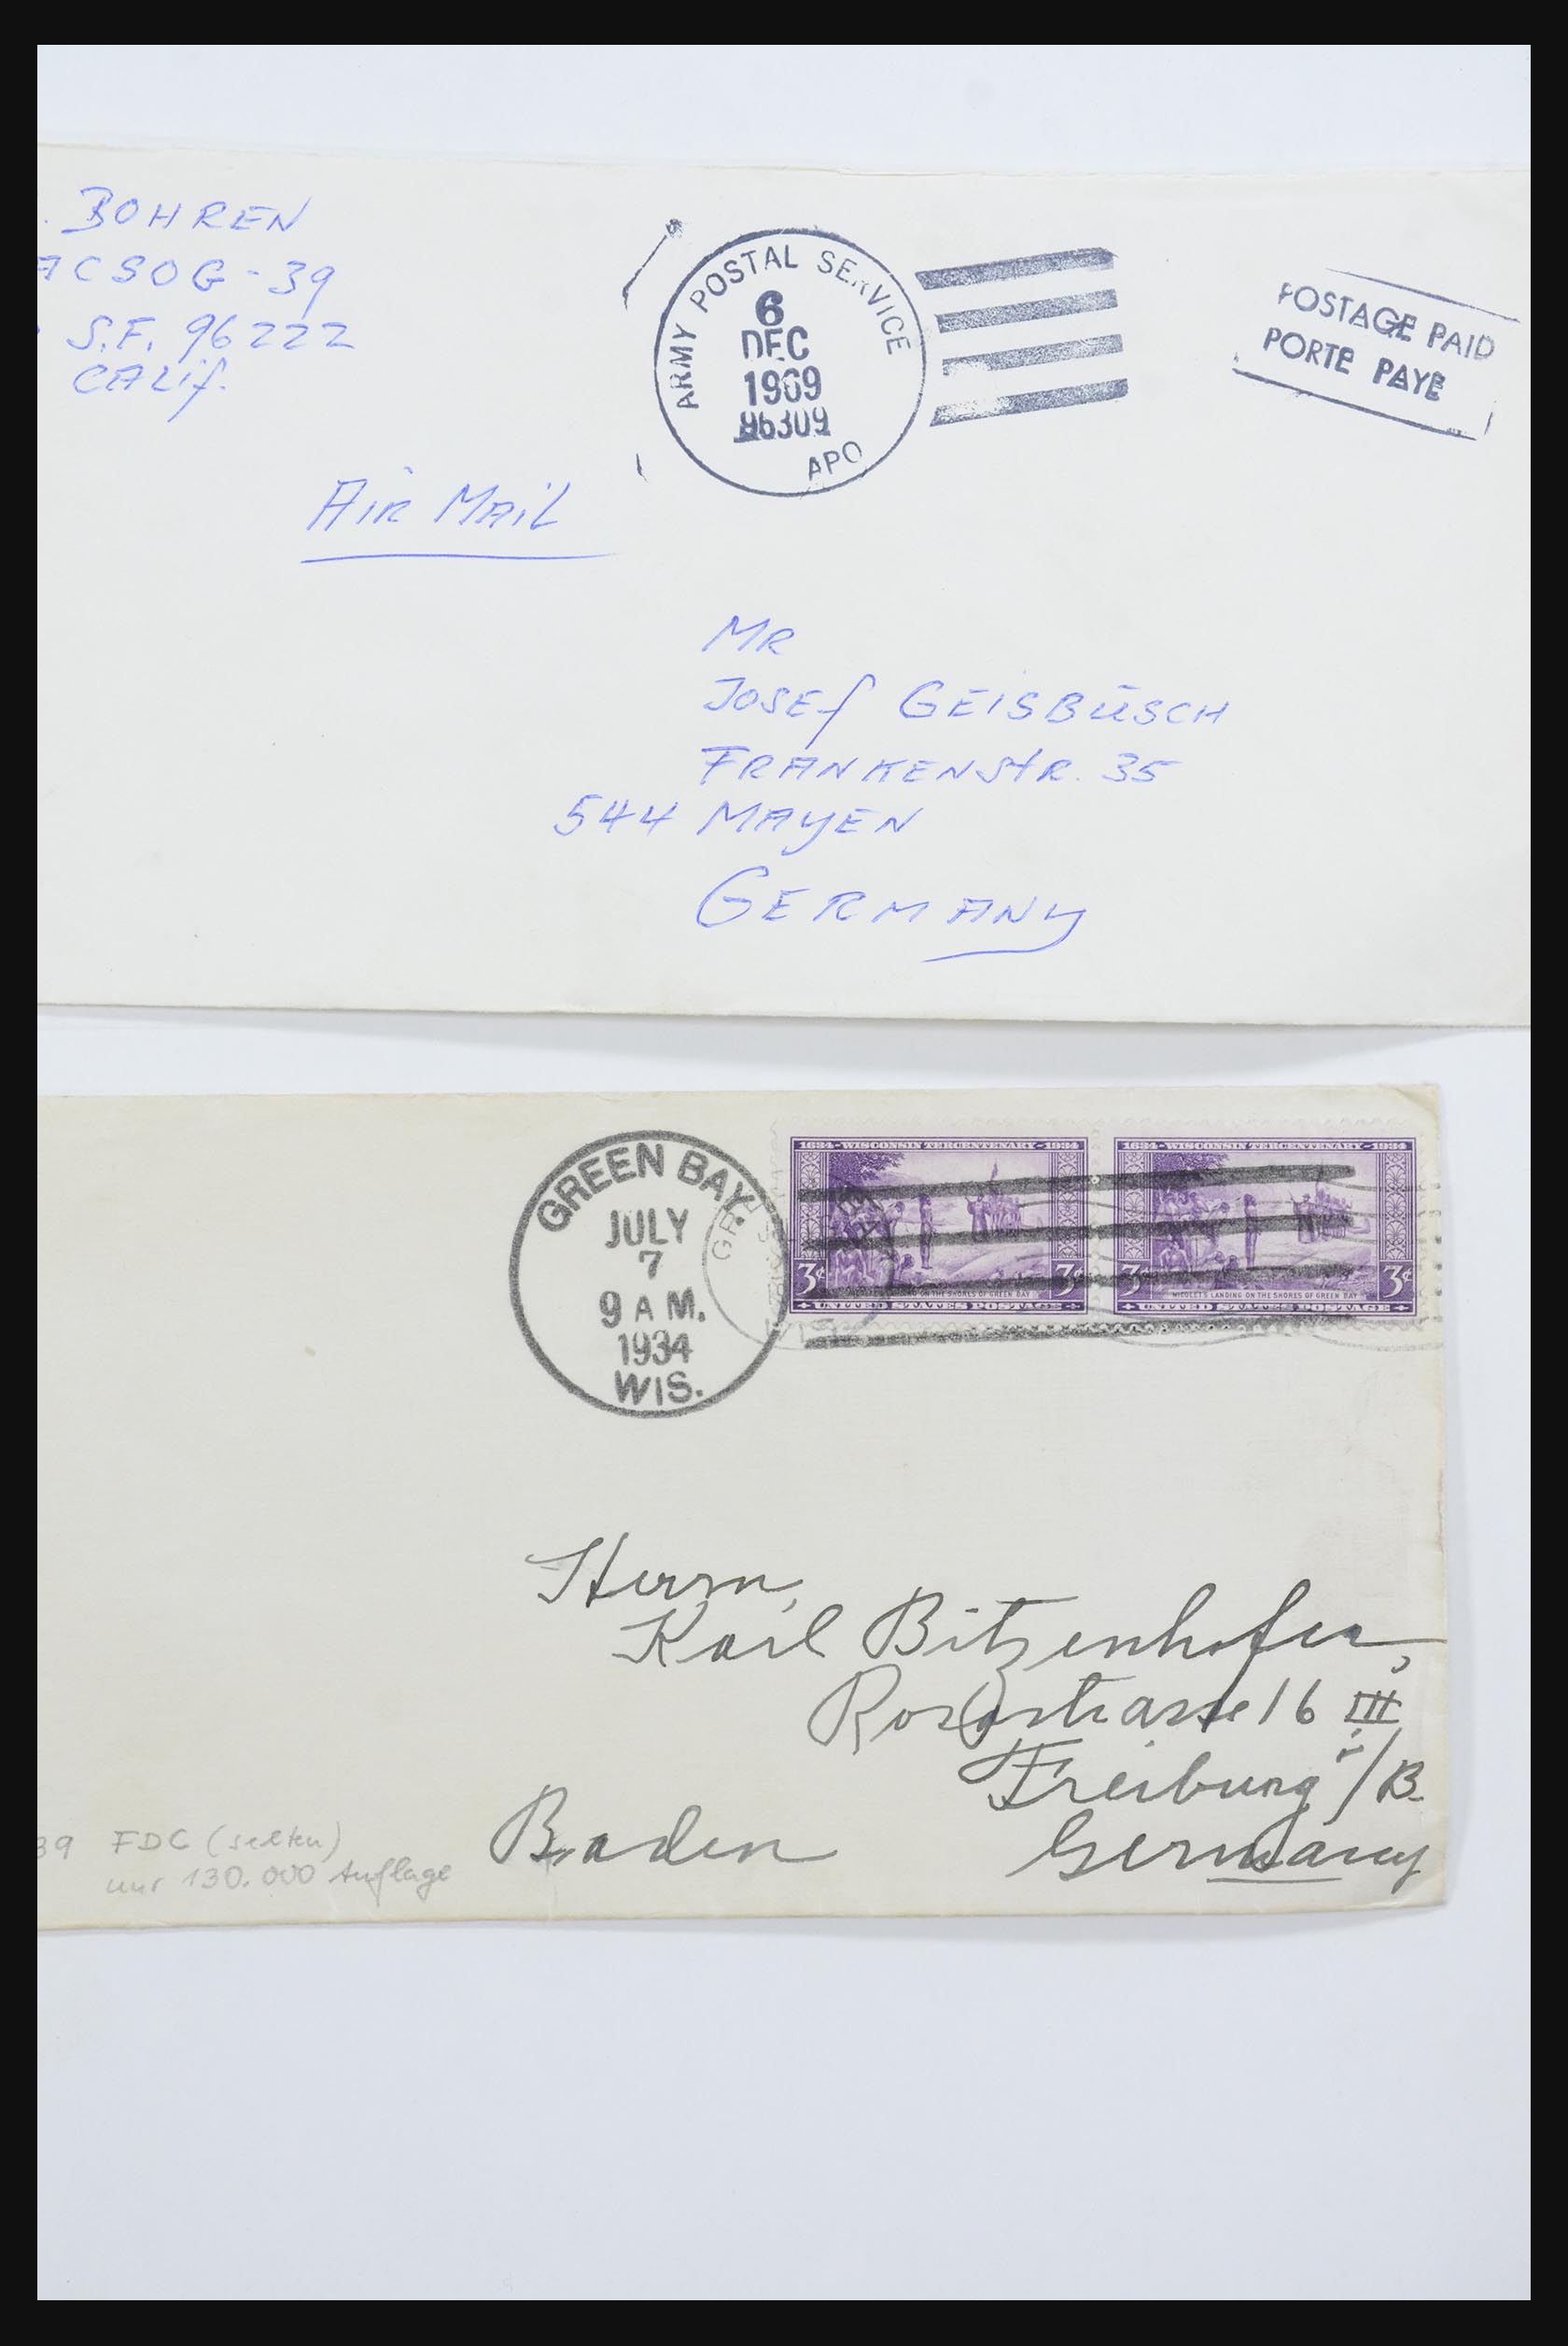 . BOHREN
ACSOG-39
S.F. 96222
CALif.
ARMY POSTAL SERVICE
6
DEC
1969
96309
APO
POSTAGE PAID
PORTE PAYE
AiR MAiL
MR
JOSEf GEISBÜSCH
FRANKENStR. 35
544 MAYEN
GERMANY
GREEN BAY.
JULY
7
9 A M.
1934
WIS.
1634-WISCONSIN TERCENTENARY-1934
3¢ 3¢
LANDING ON THE SHORES OF GREEN BAY
UNITED STATES POSTAGE
1634-WISCONSIN TERCENTENARY-1934
3¢ 3¢
NICOLET'S LANDING ON THE SHORES OF GREEN BAY
UNITED STATES POSTAGE
Herrn,
Karl Bitzenhofer,
16 III
Freiburg i/B.
Baden Germany
39 FDC (selten)
nur 130.000 Auflage